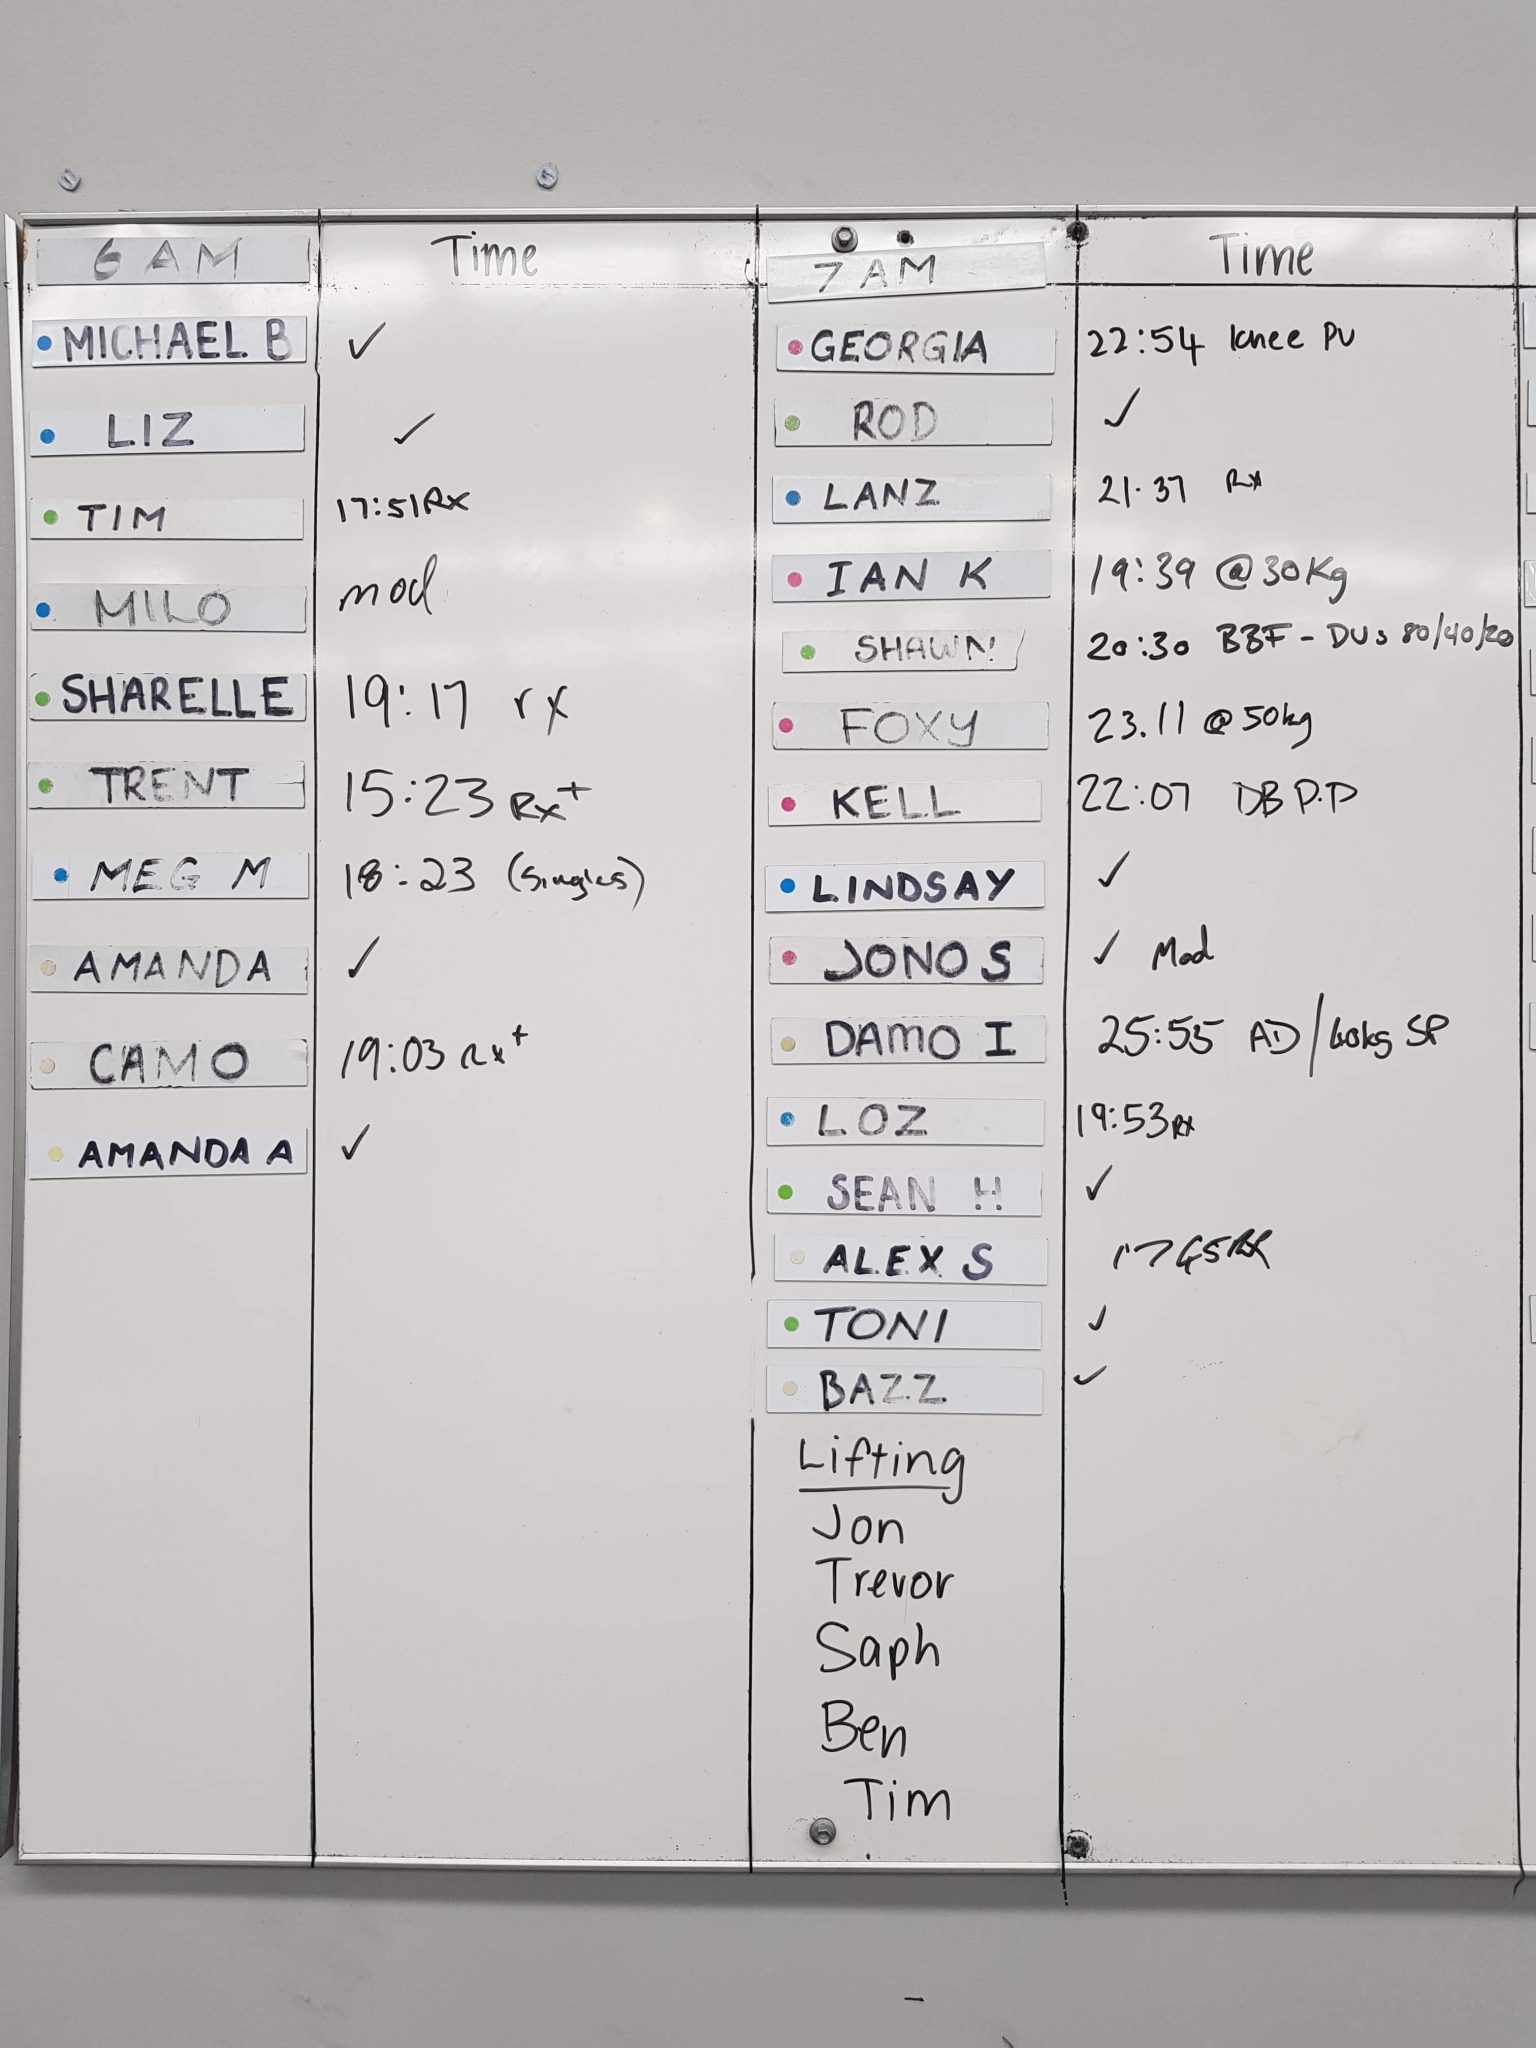 6 AM Time
MICHAEL B ✓
LIZ ✓
TIM 17:51 Rx
MILO mod
SHARELLE 19:17 rx
TRENT 15:23 Rx+
MEG M 18:23 (Singles)
AMANDA ✓
CAMO 19:03 Rx+
AMANDA A ✓
7 AM Time
GEORGIA 22:54 knee PU
ROD ✓
LANZ 21:37 Rx
IAN K 19:39 @ 30kg
SHAWN 20:30 BBF - DUs 80/40/20
FOXY 23.11 @ 50kg
KELL 22:07 DB P.P
LINDSAY ✓
JONO S ✓ Mod
DAMO I 25:55 AD/60kg SP
LOZ 19:53 Rx
SEAN H ✓
ALEX S 17 45 RX
TONI ✓
BAZZ ✓
Lifting
Jon
Trevor
Saph
Ben
Tim